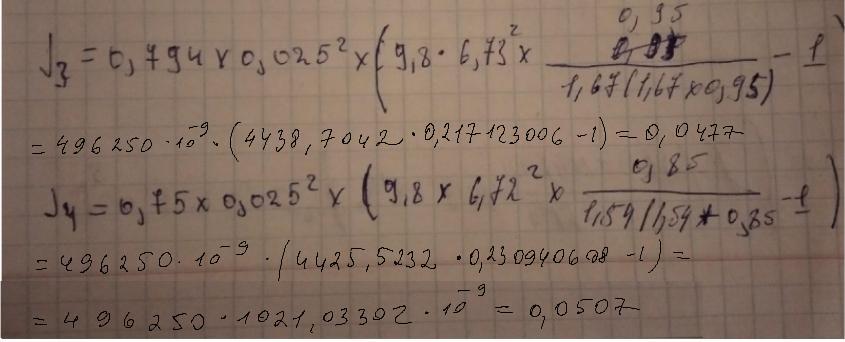 J₃ = 0,794 × 0,025² × (9,8 · 6,73² × 0,95 / 1,67(1,67 × 0,95) - 1)
= 496250 · 10⁻⁹ · (4438,7042 · 0,217123006 - 1) = 0,0477
J₄ = 0,75 × 0,025² × (9,8 × 6,72² × 0,85 / 1,54(1,54 + 0,85 - 1)
= 496250 · 10⁻⁹ · (4425,5232 · 0,230940608 - 1) =
= 496250 · 1021,03302 · 10⁻⁹ = 0,0507